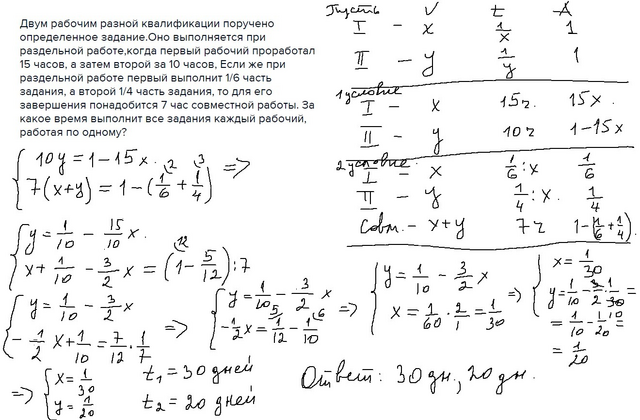 Двум рабочим разной квалификации поручено
определенное задание.Оно выполняется при
раздельной работе,когда первый рабочий проработал
15 часов, а затем второй за 10 часов, Если же при
раздельной работе первый выполнит 1/6 часть
задания, а второй 1/4 часть задания, то для его
завершения понадобится 7 час совместной работы. За
какое время выполнит все задания каждый рабочий,
работая по одному?
Пусть V t A
I - x 1/x 1
II - y 1/y 1
1 условие
I - x 15ч. 15x
II - y 10ч 1-15x
2 условие.
I - x 1/6 : x 1/6
II - y 1/4 : x. 1/4
Совм. - x+y 7ч 1-(1/6+1/4).
{ 10y = 1-15x.
7(x+y) = 1-(1/6 + 1/4) =>
{ y = 1/10 - 15/10 x.
x + 1/10 - 3/2 x = (1 - 5/12) : 7
{ y = 1/10 - 3/2 x
-1/2 x + 1/10 = 7/12 · 1/7 =>
{ y = 1/10 - 3/2 x
-1/2 x = 1/12 - 1/10 =>
{ y = 1/10 - 3/2 x
x = 1/60 · 2/1 = 1/30 =>
{ x = 1/30
y = 1/10 - 3/2 · 1/30 =
= 1/10 - 1/20 =
= 1/20
=> { x = 1/30 t₁ = 30 дней
y = 1/20 t₂ = 20 дней
Ответ: 30 дн., 20 дн.